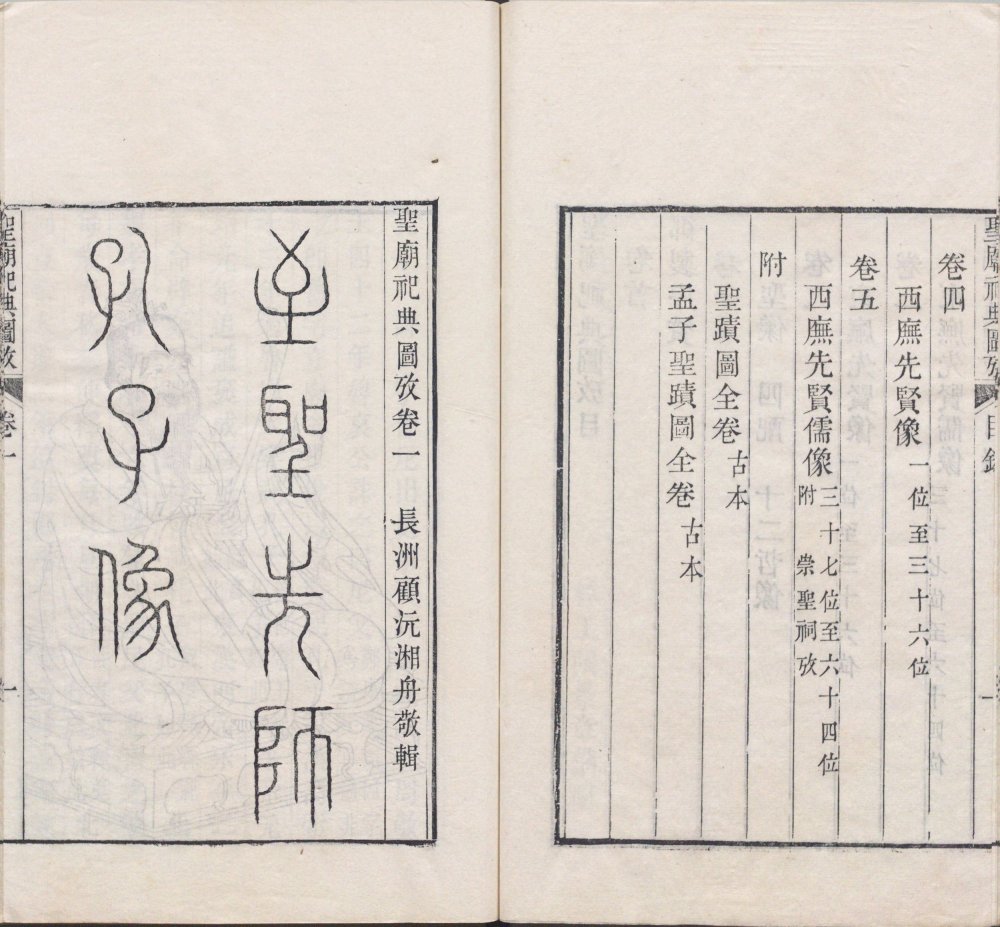 聖廟祀典圖攷
目錄
一
卷四
西廡先賢像 一位至三十六位
卷五
西廡先賢儒像 三十七位至六十四位
附 崇聖祠攷
附
聖蹟圖全卷 古本
孟子聖蹟圖全卷 古本
聖廟祀典圖攷卷一 長洲顧沅湘舟敬輯
至聖先師
孔子像
聖廟祀典圖攷
卷一
一